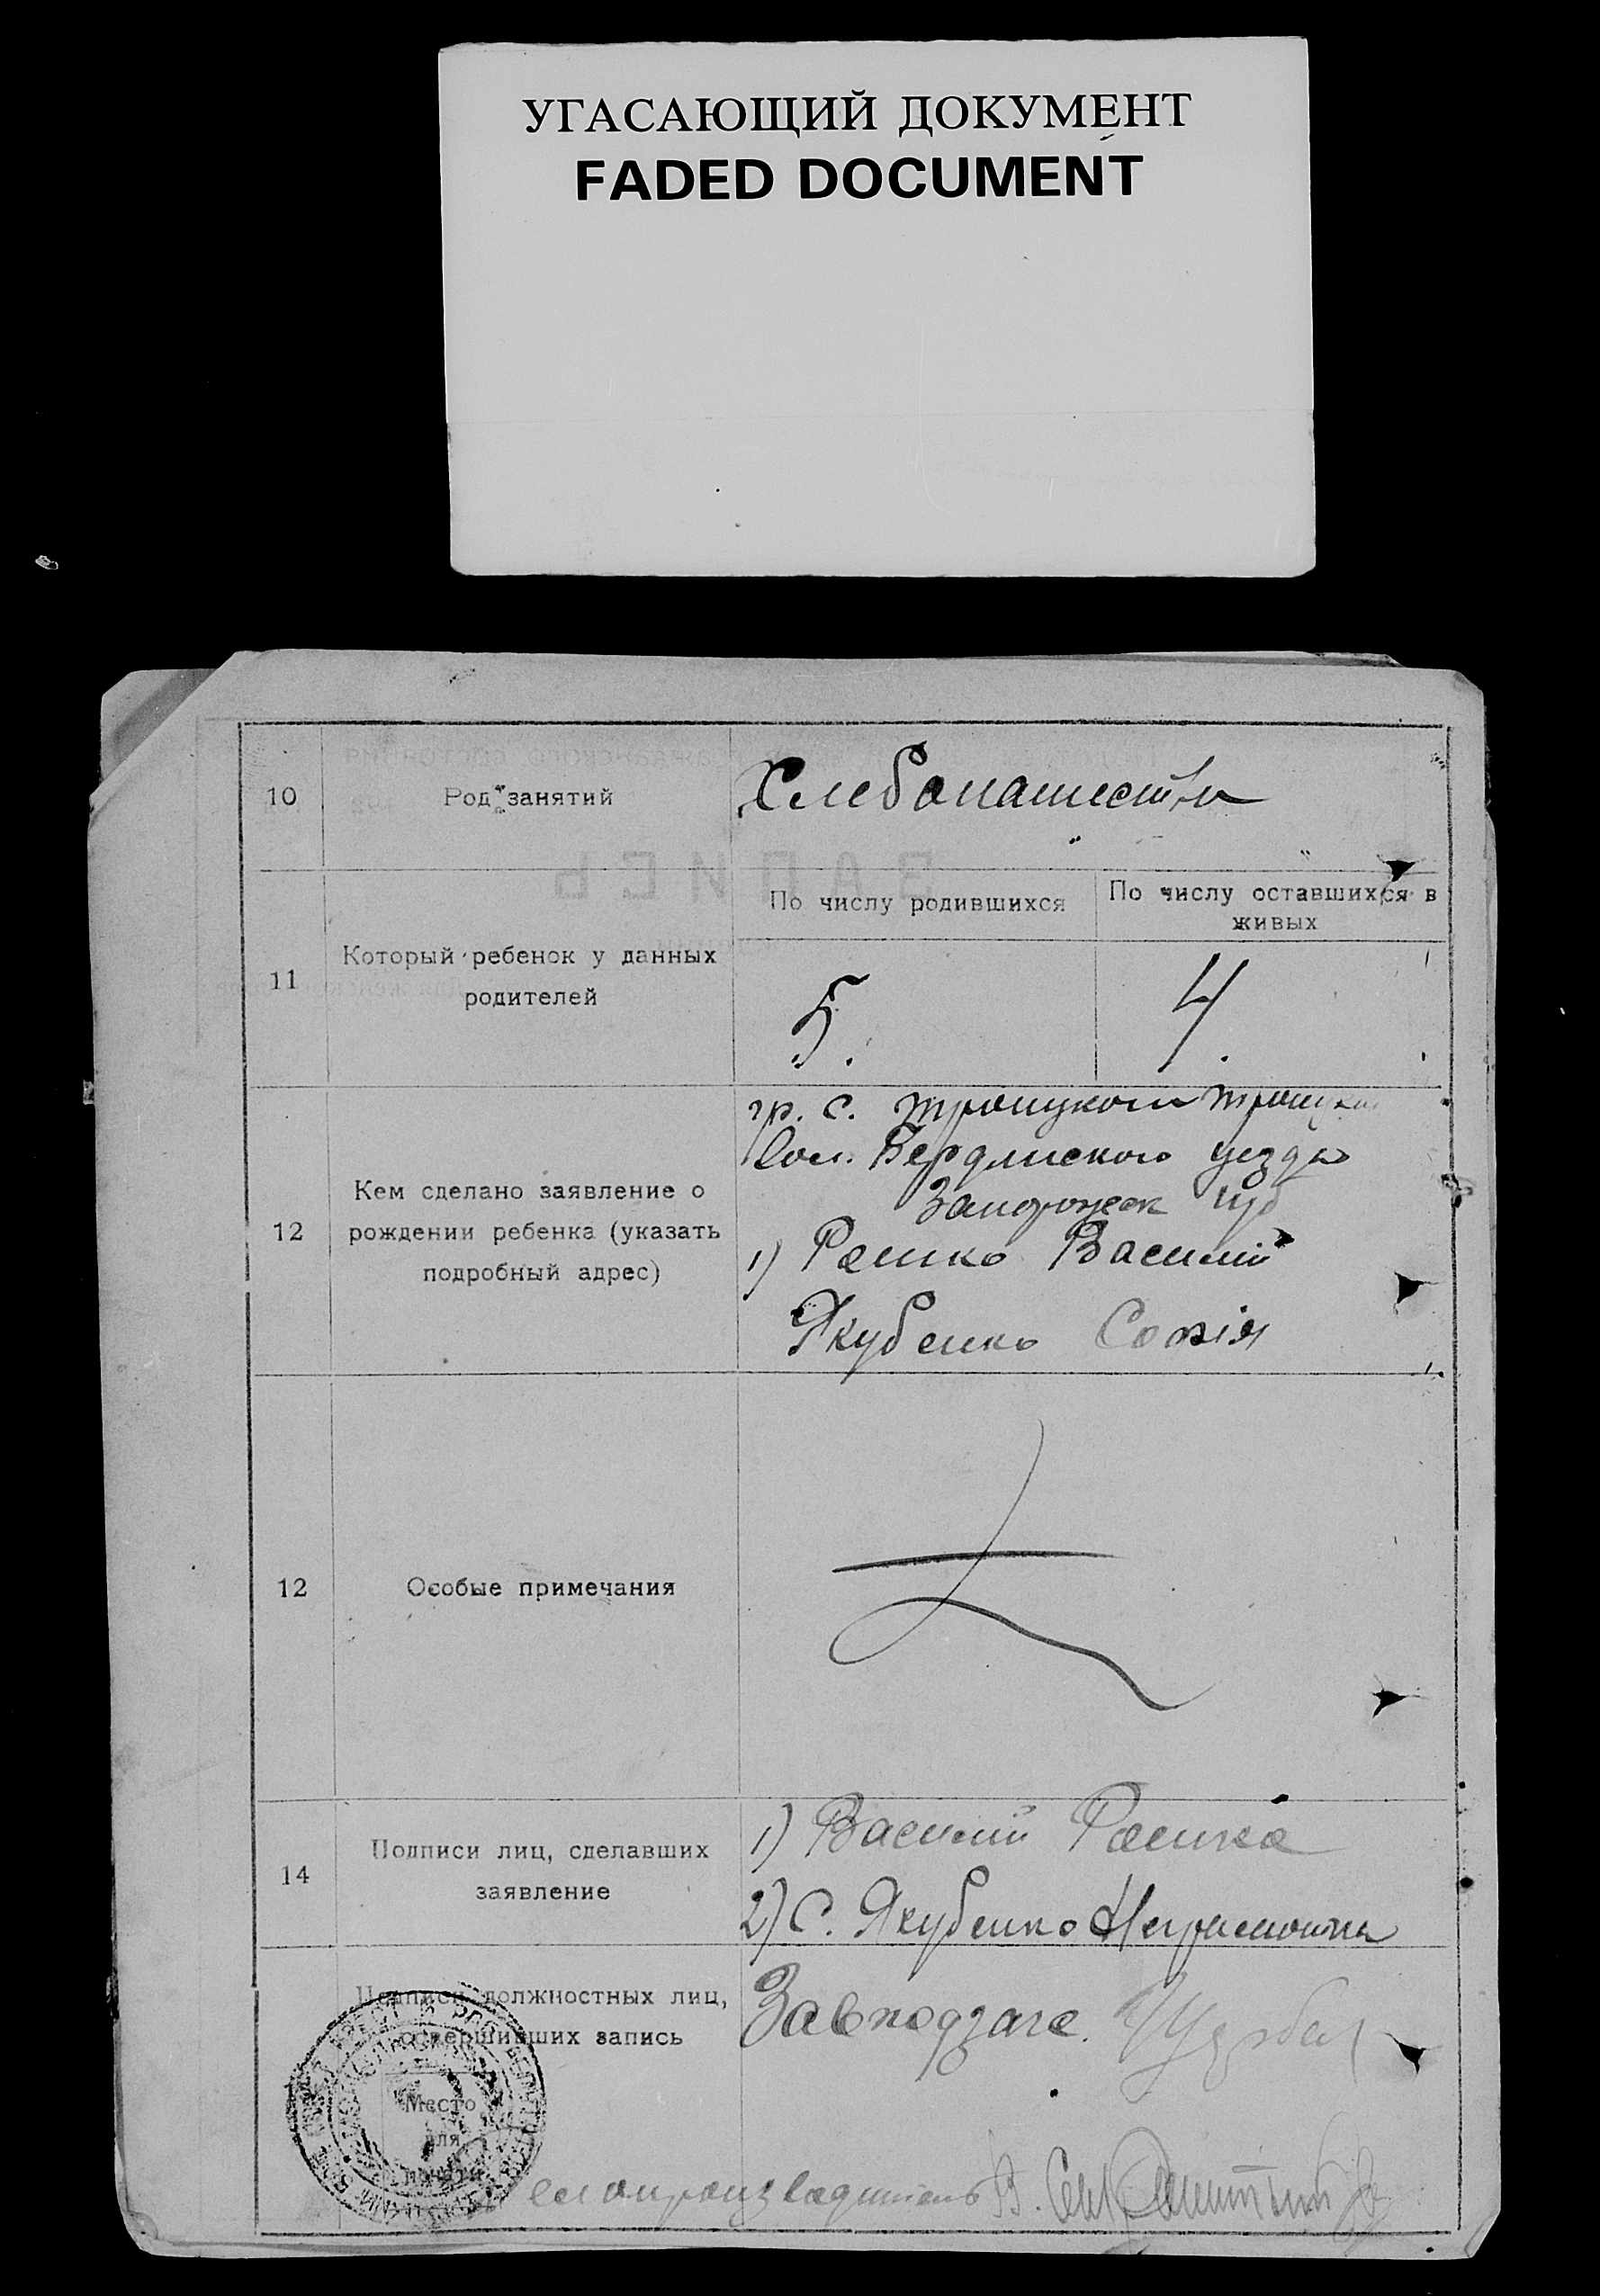 УГАСАЮЩИЙ ДОКУМЕНТ
FADED DOCUMENT
10 Род занятий Хлебопашество
11 Который ребенок у данных родителей
По числу родившихся
По числу оставшихся в живых
5. 4.
12 Кем сделано заявление о рождении ребенка (указать подробный адрес)
гр. с. Троицкого Троицкой
Вол. Бердянского уезда
Запорожск губ
1) Рашко Василий
Якубенко Софія
12 Особые примечания
14 Подписи лиц, сделавших заявление
1) Василий Рашко
2) С. Якубенко
Подписи должностных лиц, совершивших запись
Завподзагс.
Место
для
печати
елопроизводитель В.